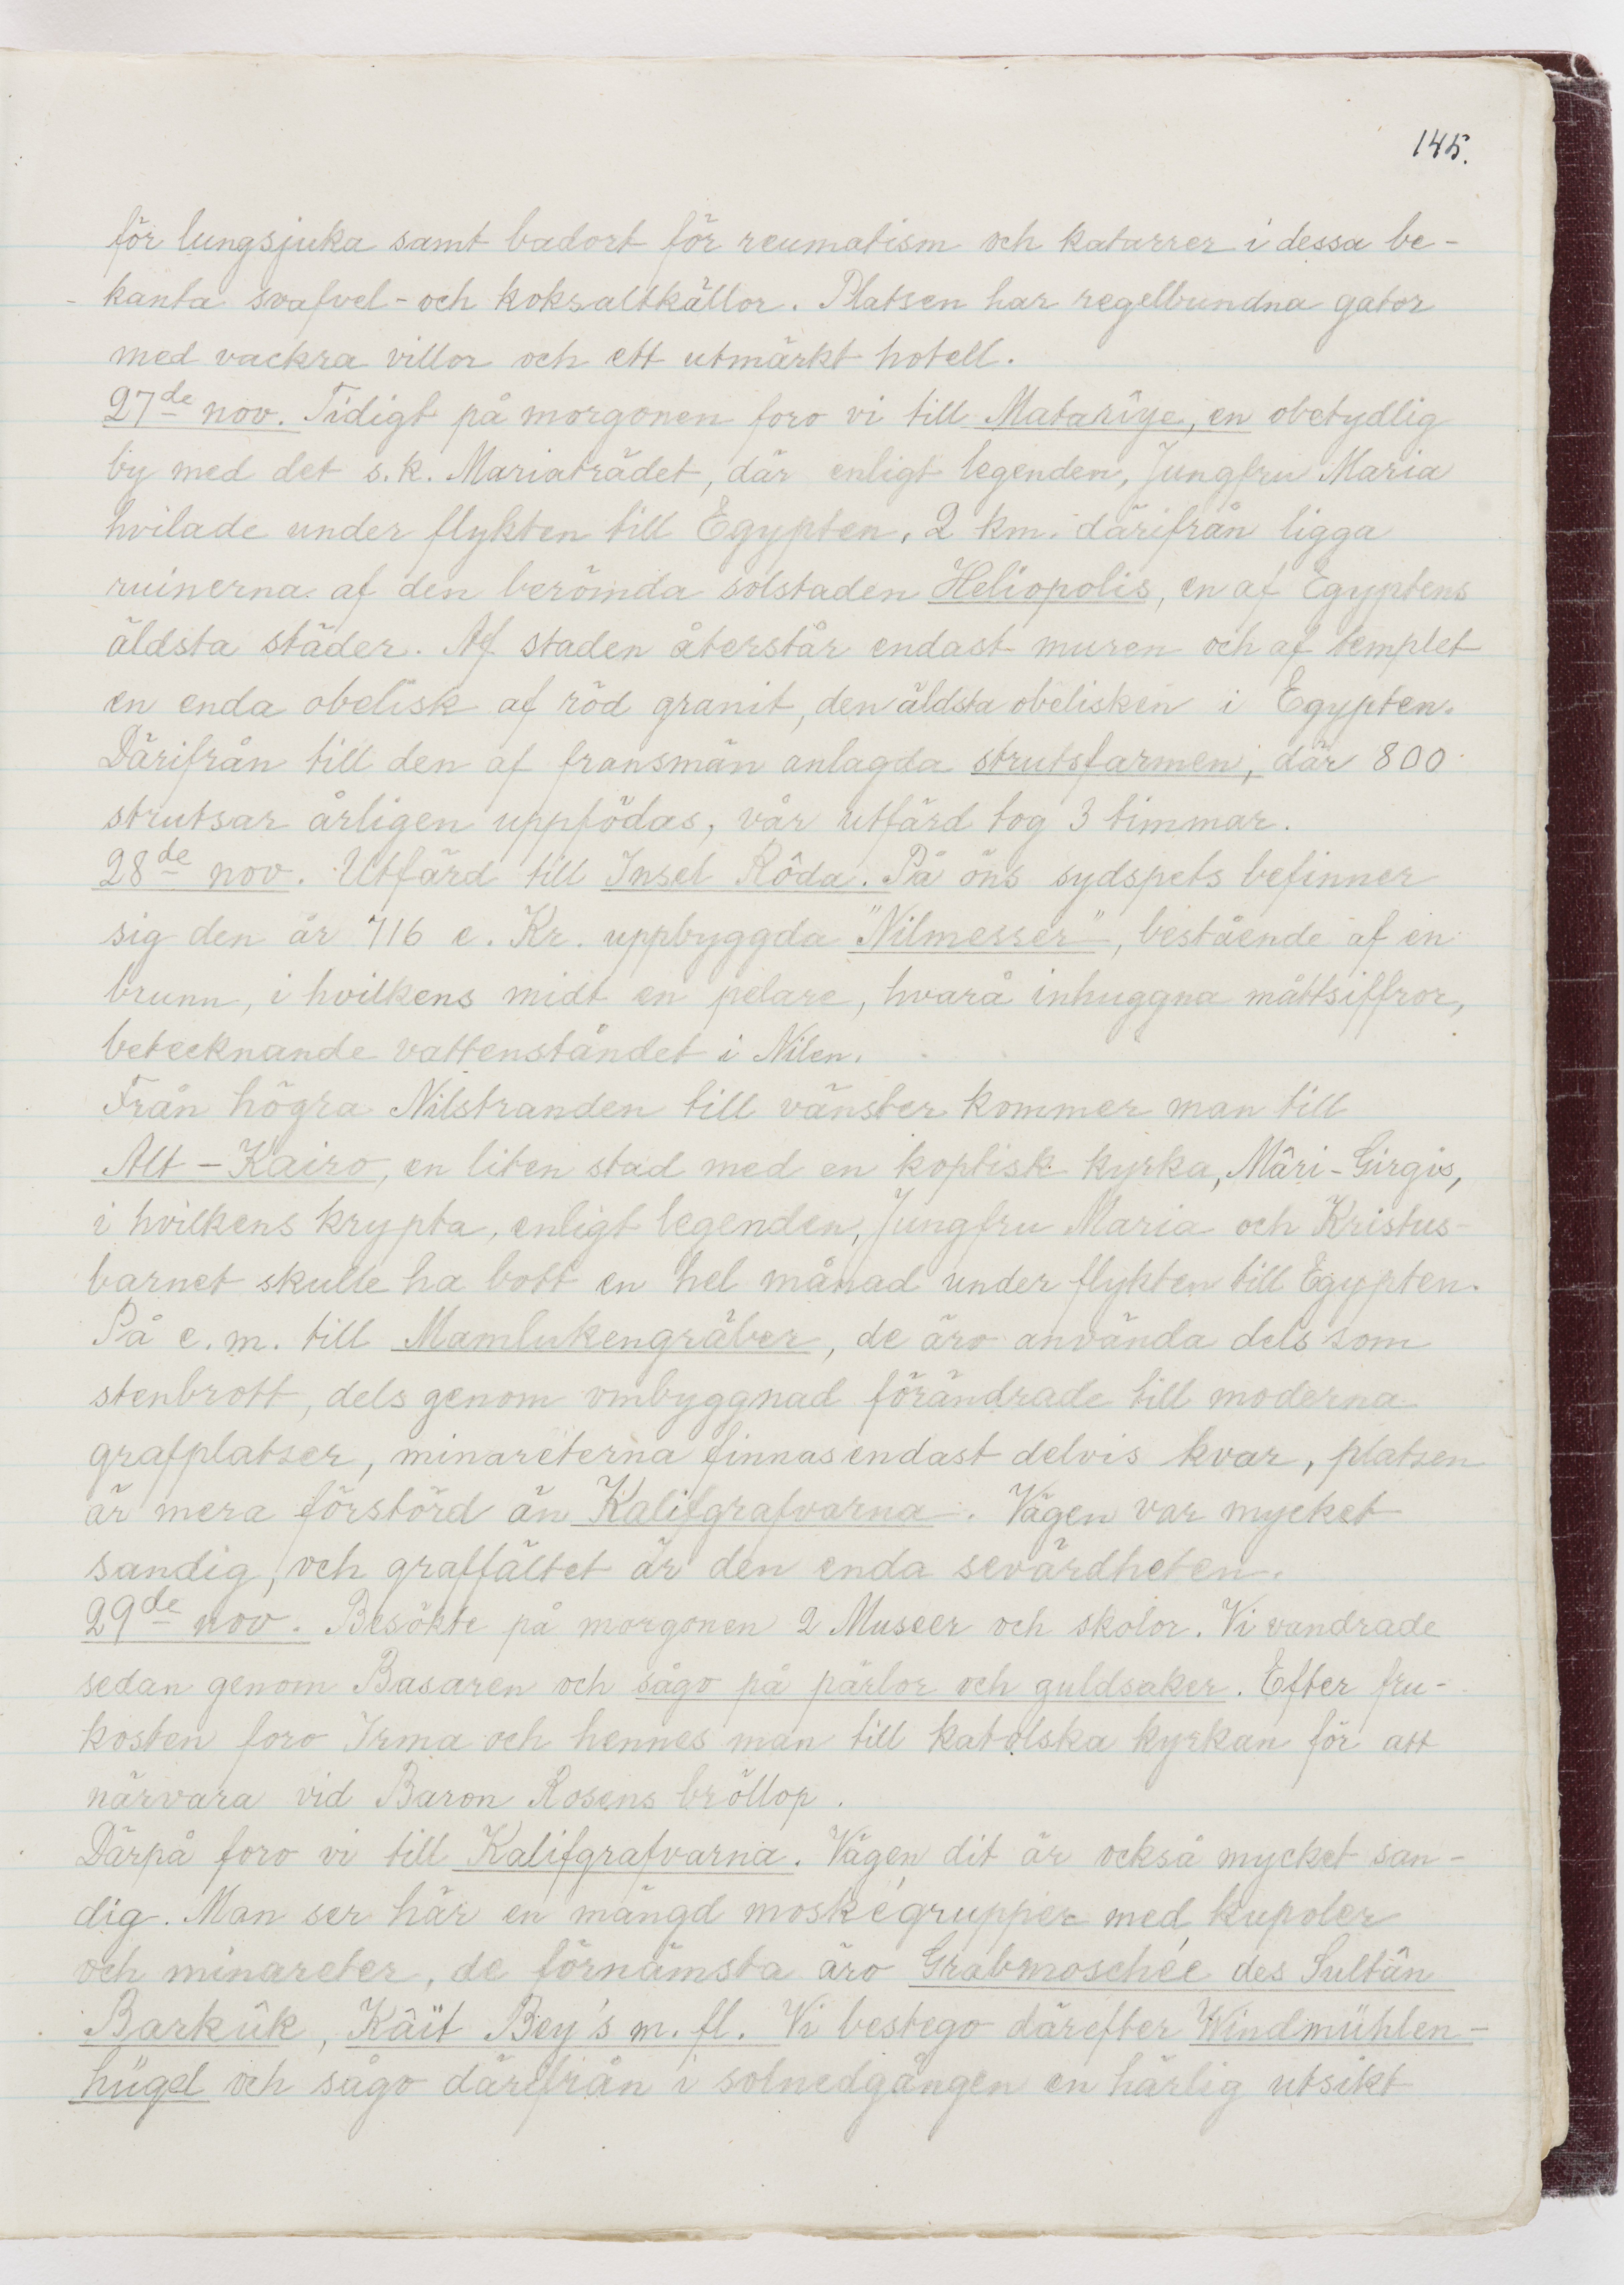 145.
för lungsjuka samt badort för reumatism och katarrer i dessa be-
- kanta svafvel- och koksaltkällor. Platsen har regelbundna gator
med vackra villor och ett utmärkt hotell.
27de nov. Tidigt på morgonen foro vi till Matarîye, en obetydlig
by med det s.k. Mariaträdet, där enligt legenden, Jungfru Maria
hvilade under flykten till Egypten. 2 km. därifrån ligga
ruinerna af den berömda solstaden Heliopolis, en af Egyptens
äldsta städer. Af staden återstår endast muren och af templet
en enda obelisk af röd granit, den äldsta obelisken i Egypten.
Därifrån till den af fransmän anlagda strutsfarmen, där 800
strutsar årligen uppfödas, vår utfärd tog 3 timmar.
28de nov. Utfärd till Insel Rôda. På öns sydspets befinner
sig den år 716 e. Kr. uppbyggda "Nilmesser", bestående af en
brunn, i hvilkens midt en pelare, hvarå inhuggna måttsiffror,
betecknande vattenståndet i Nilen.
Från högra Nilstranden till vänster kommer man till
Alt-Kairo, en liten stad med en koptisk kyrka, Mâri-Girgis,
i hvilkens krypta, enligt legenden, Jungfru Maria och Kristus-
barnet skulle ha bott en hel månad under flykten till Egypten.
På e.m. till Mamlukengräber, de äro använda dels som
stenbrott, dels genom ombyggnad förändrade till moderna
grafplatser, minareterna finnas endast delvis kvar, platsen
är mera förstörd än Kalifgrafvarna. Vägen var mycket
sandig, och graffältet är den enda sevärdheten.
29de nov. Besökte på morgonen 2 Museer och skolor. Vi vandrade
sedan genom Basaren och sågo på pärlor och guldsaker. Efter fru-
kosten foro Irma och hennes man till katolska kyrkan för att
närvara vid Baron Rosens bröllop.
Därpå foro vi till Kalifgrafvarna. Vägen dit är också mycket san-
dig. Man ser här en mängd moskégrupper med kupoler
och minareter, de förnämsta äro Grabmoschée des Sultân
Barkûk, Kâït Bey's m. fl. Vi bestego därefter Windmühlen-
hügel och sågo därifrån i solnedgången en härlig utsikt